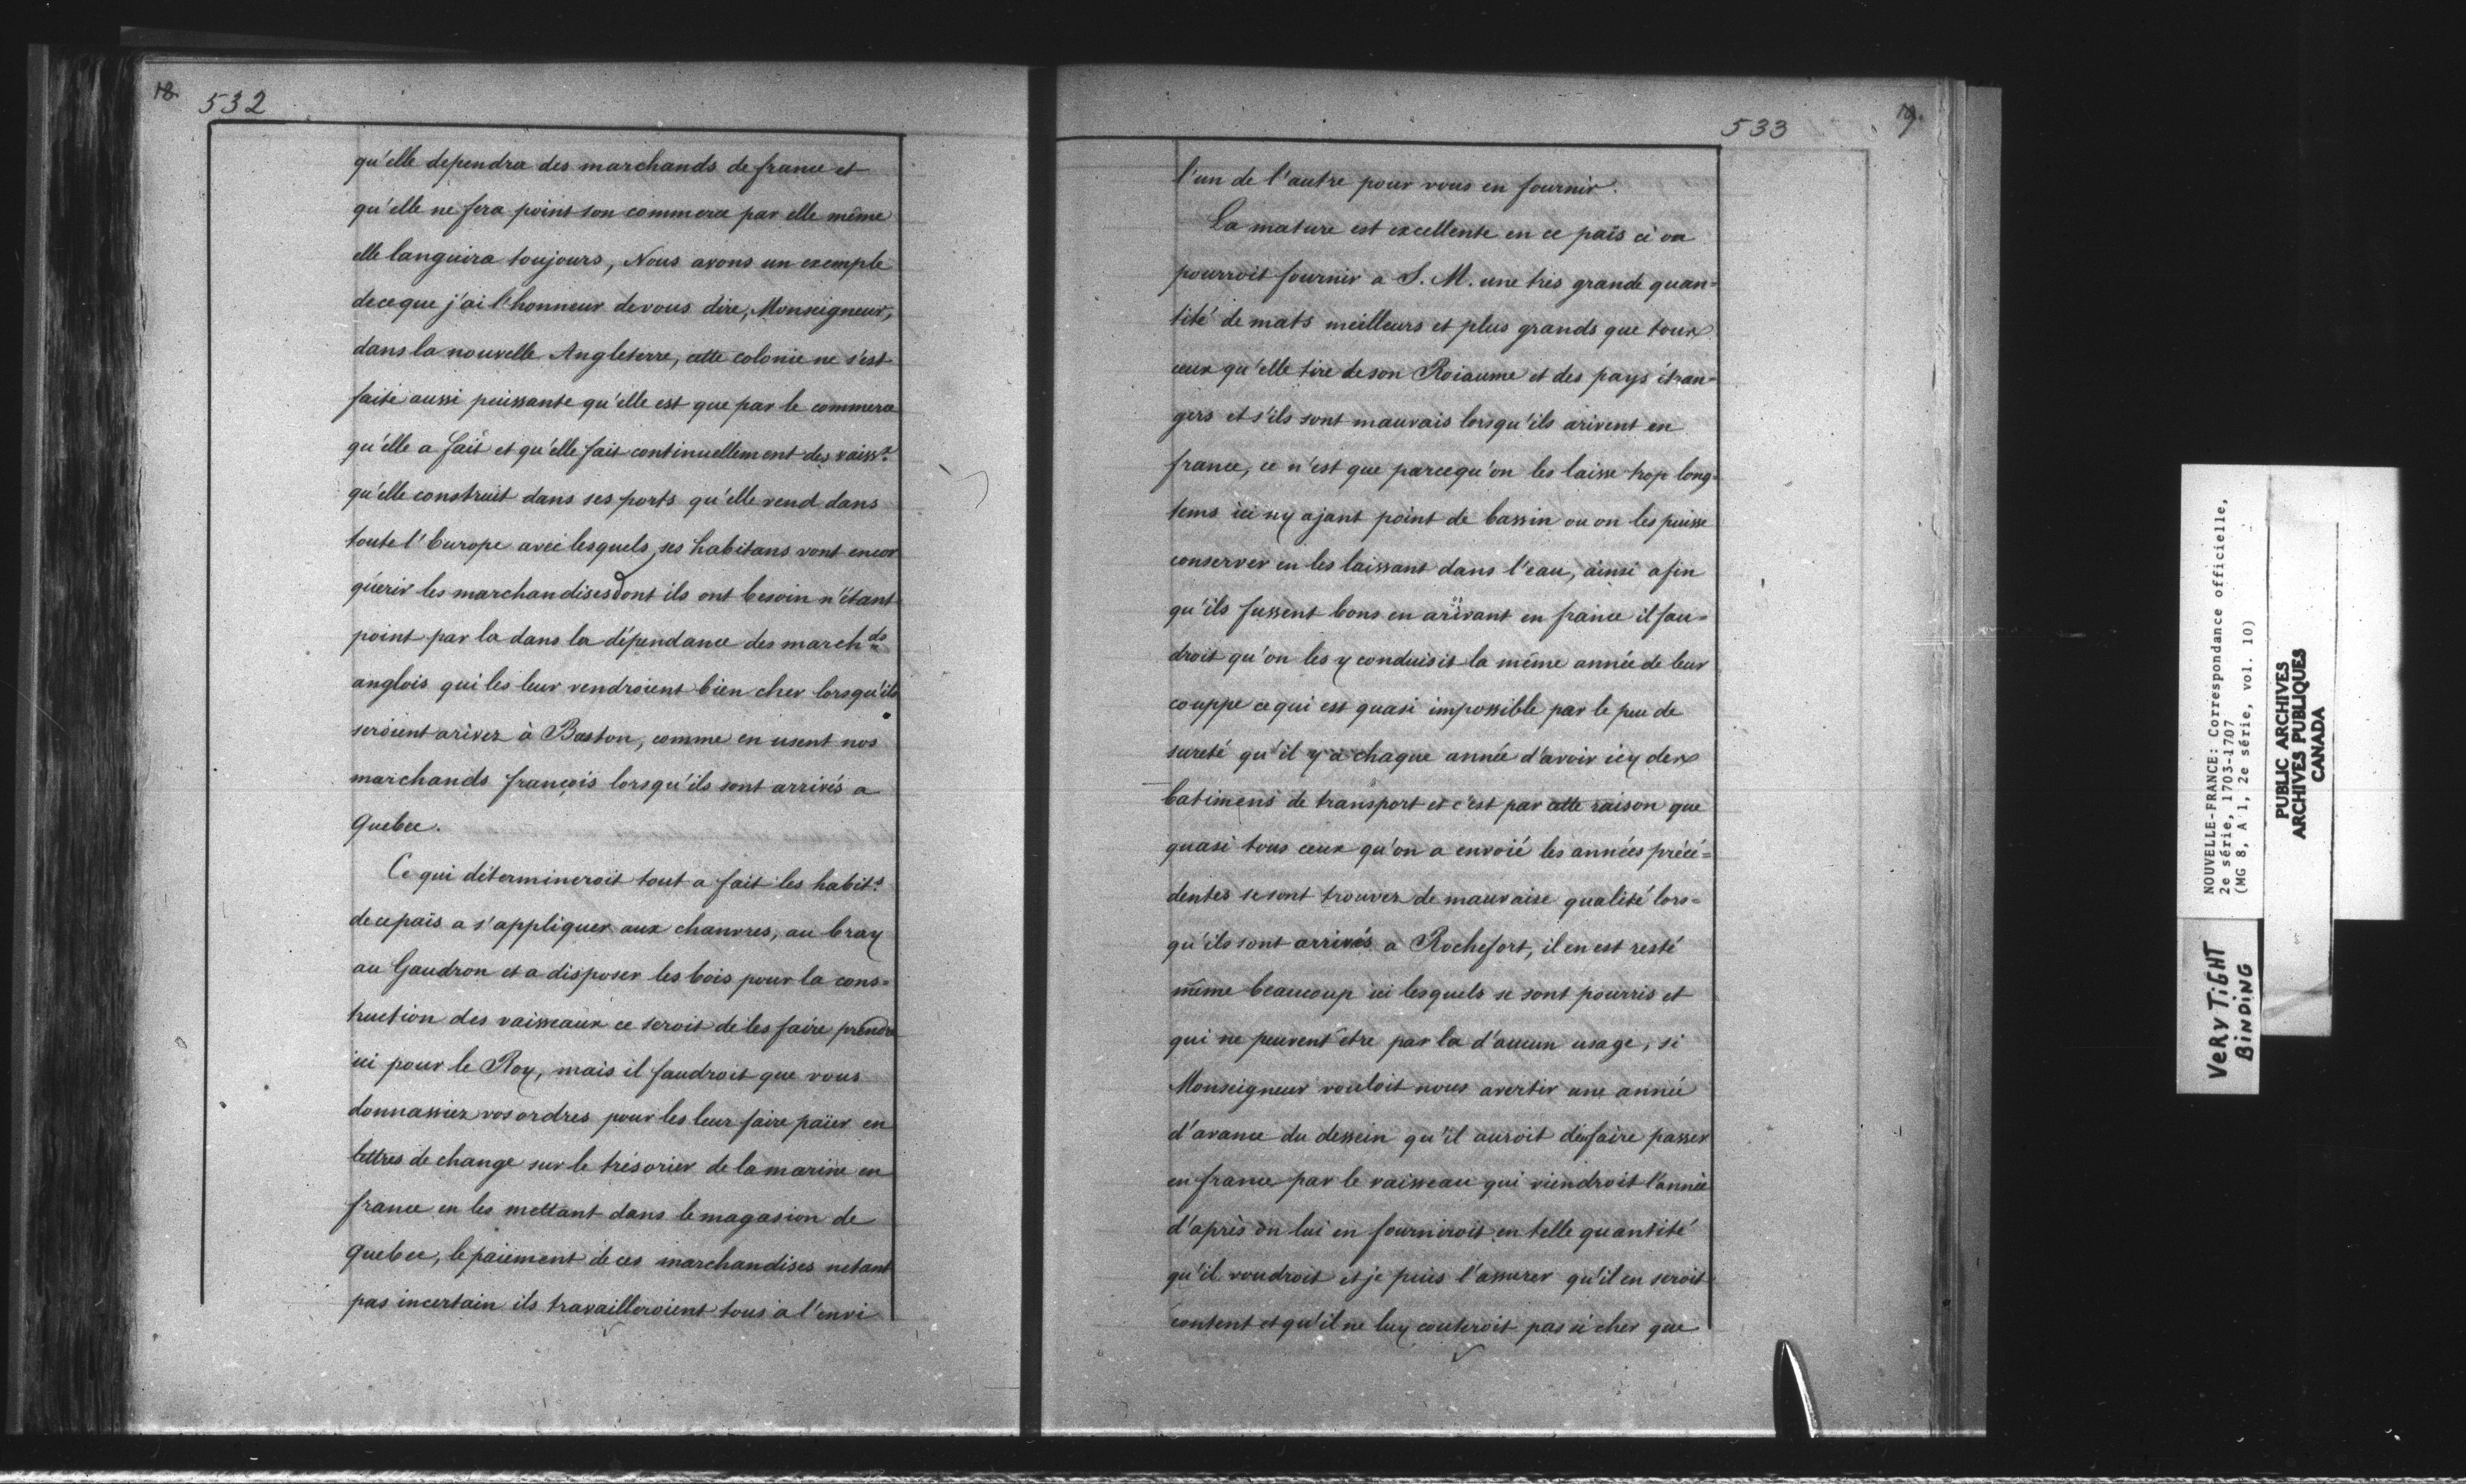 18
532
qu'elle dependra des marchands de france et
qu'elle ne fera point son commerce par elle même
elle languira toujours, Nous avons un exemple
de ce que j'ai l'honneur de vous dire, Monseigneur,
dans la nouvelle Angleterre, cette colonie ne s'est
faite aussi puissante qu'elle est que par le commerce
qu'elle a fait et qu'elle fait continuellement des vaissx
qu'elle construit dans ses ports qu'elle vend dans
toute l'Europe avec lesquels ses habitans vont encor
quérir les marchandises dont ils ont besoin n'étant
point par la dans la dépendance des marchds
anglois qui les leur vendroient bien cher lorsqu'ils
seroient arivez à Baston, comme en usent nos
marchands françois lorsqu'ils sont arrivés a
Quebec.
Ce qui détermineroit tout a fait les habits
de ce païs a s'appliquer aux chanvres, au bray
au Gaudron et a disposer les bois pour la cons=
truction des vaisseaux ce seroit de les faire prendre
ici pour le Roy, mais il faudroit que vous
donnassiez vos ordres pour les leur faire païer en
lettres de change sur le trésorier de la marine en
france en les mettant dans le magasion de
Quebec, le paiement de ces marchandises netant
pas incertain ils travailleroient tous a l'envi
533
19.
l'un de l'autre pour vous en fournir.
La mature est excellente en ce païs ci on
pourroit fournir a S. M. une très grande quan=
tité de mats meilleurs et plus grands que tous
ceux qu'elle tire de son Roiaume et des pays étran=
gers et s'ils sont mauvais lorsqu'ils arivent en
france, ce n'est que parcequ'on les laisse trop long=
tems ici ny ajant point de bassin ou on les puisse
conserver en les laissant dans l'eau, ainsi afin
qu'ils fussent bons en arivant en france il fau=
droit qu'on les y conduisit la même année de leur
couppe ce qui est quasi impossible par le peu de
sureté qu'il y a chaque année d'avoir icy des
batimens de transport et c'est par cette raison que
quasi tous ceux qu'on a envoié les années précé=
dentes se sont trouvez de mauvaise qualité lors=
qu'ils sont arrivés a Rochefort, il en est resté
même beaucoup ici lesquels se sont pourris et
qui ne peuvent être par la d'aucun usage, si
Monseigneur vouloit nous avertir une année
d'avance du dessein qu'il auroit d'en faire passer
en france par le vaisseau qui viendroit l'année
d'après on lui en fourniroit en telle quantité
qu'il voudroit et je puis l'assurer qu'il en seroit
content et qu'il ne luy couteroit pas si cher que
NOUVELLE-FRANCE: Correspondance officielle,
2e série, 1703-1707
(MG 8, A 1, 2e série, vol. 10)
VERY TIGHT
BINDING
PUBLIC ARCHIVES
ARCHIVES PUBLIQUES
CANADA